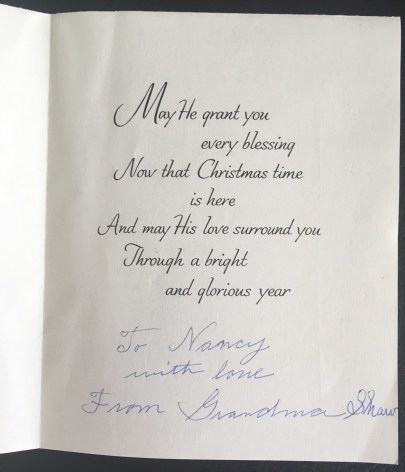 May He grant you
every blessing
Now that Christmas time
is here
And may His love surround you
Through a bright
and glorious year
To Nancy
with love
From Grandma Shaw